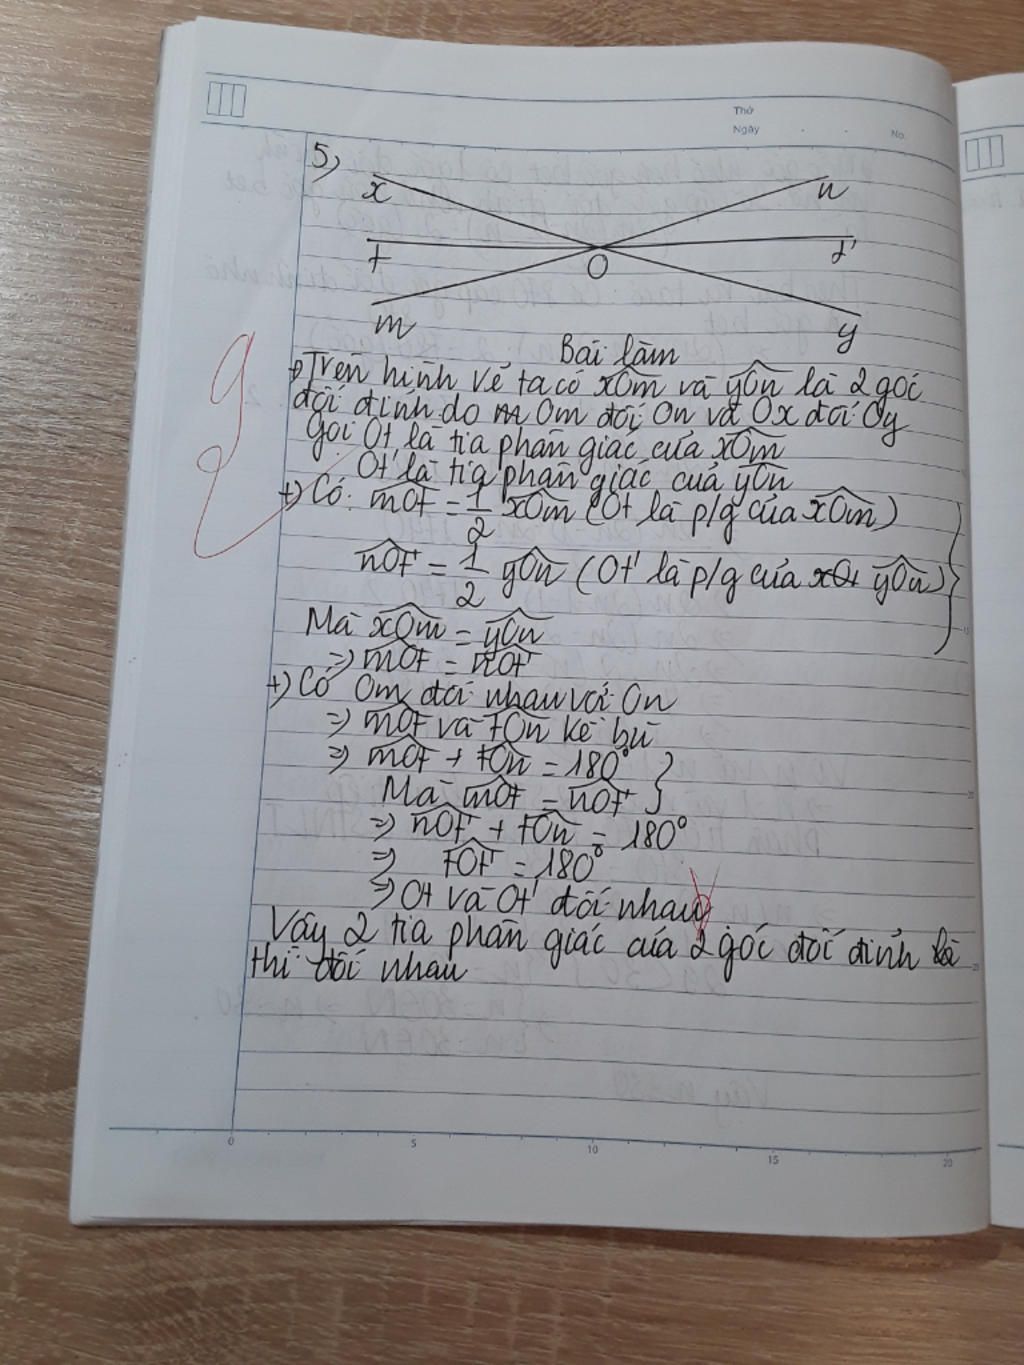 Thứ
Ngày
No.
5)
x
n
t
t'
O
m
y
Bài làm
+) Trên hình vẽ ta có xOm và yOn là 2 góc
đối đỉnh do Om đối On và Ox đối Oy
Gọi Ot là tia phân giác của xOm
Ot' là tia phân giác của yOn
+) Có: mOt = 1/2 xOm (Ot là p/g của xOm)
nOt' = 1/2 yOn (Ot' là p/g của yOn)
Mà xOm = yOn
=) mOt = nOt'
+) Có Om đối nhau với On
=) mOt và tOn kề bù
=) mOt + tOn = 180°
Mà mOt = nOt'
=) nOt' + tOn = 180°
=) tOt' = 180°
=) Ot và Ot' đối nhau
Vậy 2 tia phân giác của 2 góc đối đỉnh
thì đối nhau
0 5 10 15 20